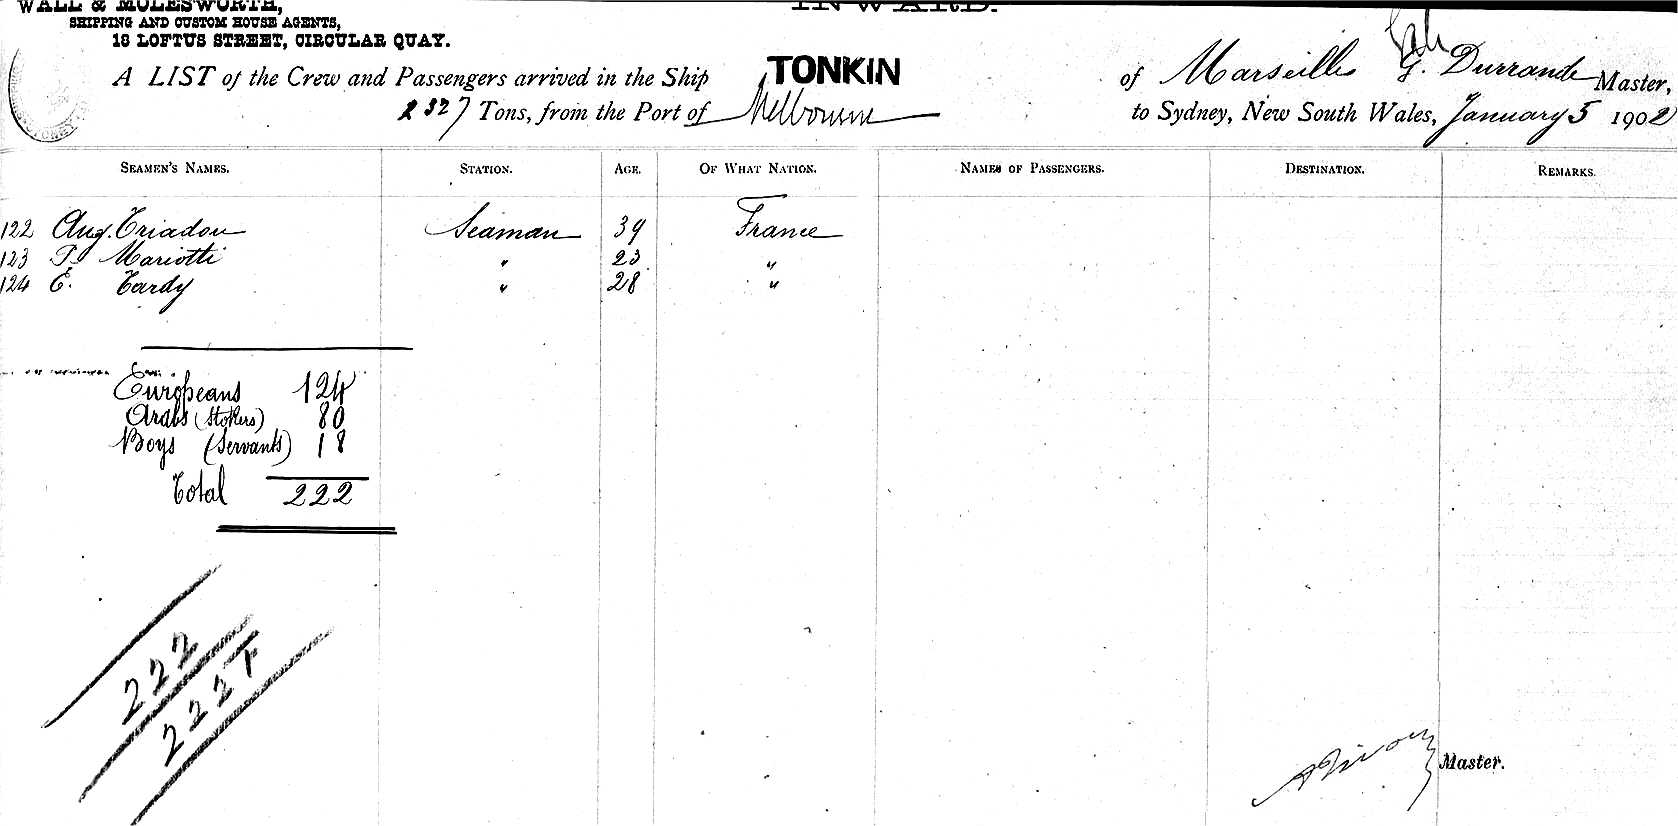 WALL & MOLESWORTH,
INWARD.
SHIPPING AND CUSTOM HOUSE AGENTS,
18 LOFTUS STREET, CIRCULAR QUAY.
A LIST of the Crew and Passengers arrived in the Ship TONKIN of Marseille G. Durrande Master,
2327 Tons, from the Port of Melbourne to Sydney, New South Wales, January 5 1902
SEAMEN'S NAMES. STATION. AGE. OF WHAT NATION. NAMES OF PASSENGERS. DESTINATION. REMARKS.
122 Aug. Triadou Seaman 39 France
123 Mariotti " 23 "
124 E. Tardy " 28 "
Europeans 124
Arabs (Stokers) 80
Boys (Servants) 18
Total 222
222
222 T
Master.